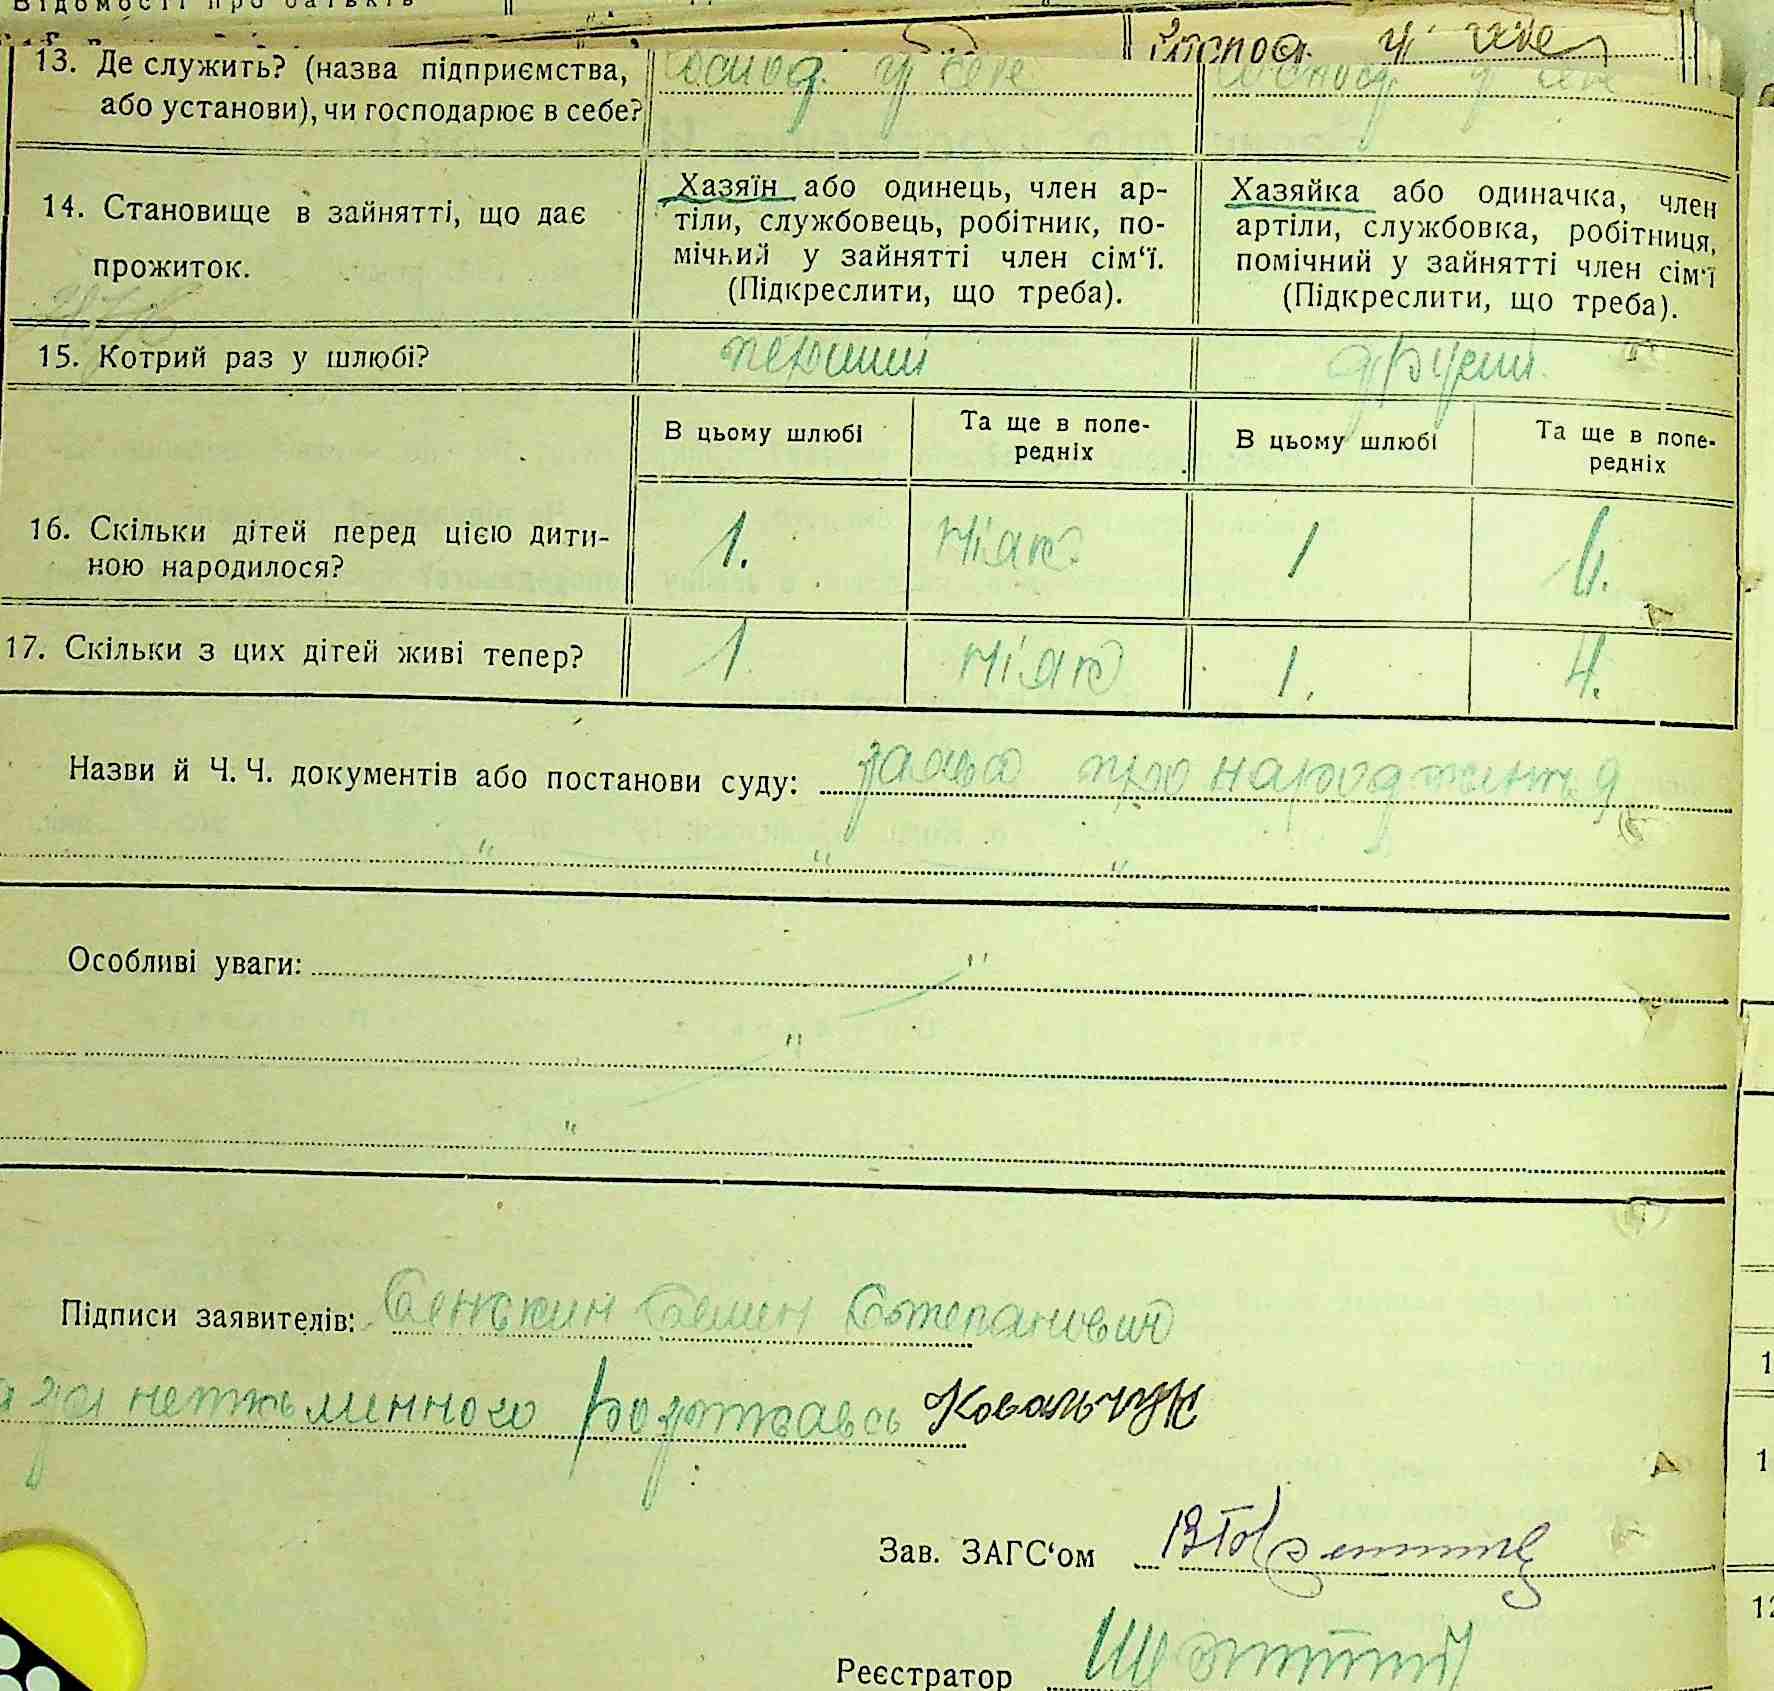 Відомості про батьків
Господ. у себе
13. Де служить? (назва підприємства, або установи), чи господарює в себе?
Господ. у себе
Господ. у себе
14. Становище в зайнятті, що дає прожиток.
Хазяїн або одинець, член ар-
тіли, службовець, робітник, по-
мічний у зайнятті член сім'ї.
(Підкреслити, що треба).
Хазяйка або одиначка, член
артіли, службовка, робітниця,
помічний у зайнятті член сім'ї
(Підкреслити, що треба).
15. Котрий раз у шлюбі?
перший
другий
В цьому шлюбі
Та ще в попе-
редніх
В цьому шлюбі
Та ще в попе-
редніх
16. Скільки дітей перед цією дити-
ною народилося?
1.
ніяк.
1
6.
17. Скільки з цих дітей живі тепер?
1
ніяк
1.
4.
Назви й Ч. Ч. документів або постанови суду: заява про народження
" " "
Особливі уваги: "
"
"
Підписи заявителів: Семен Степанович
а за нетисьменного Ковальчук
Зав. ЗАГС'ом
Реєстратор
1
1
12